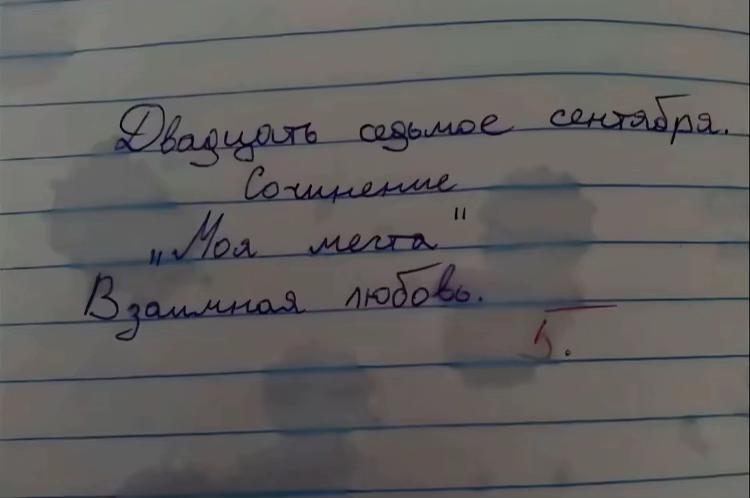 Двадцать седьмое сентября.
Сочинение
„Моя мечта"
Взаимная любовь.
5.